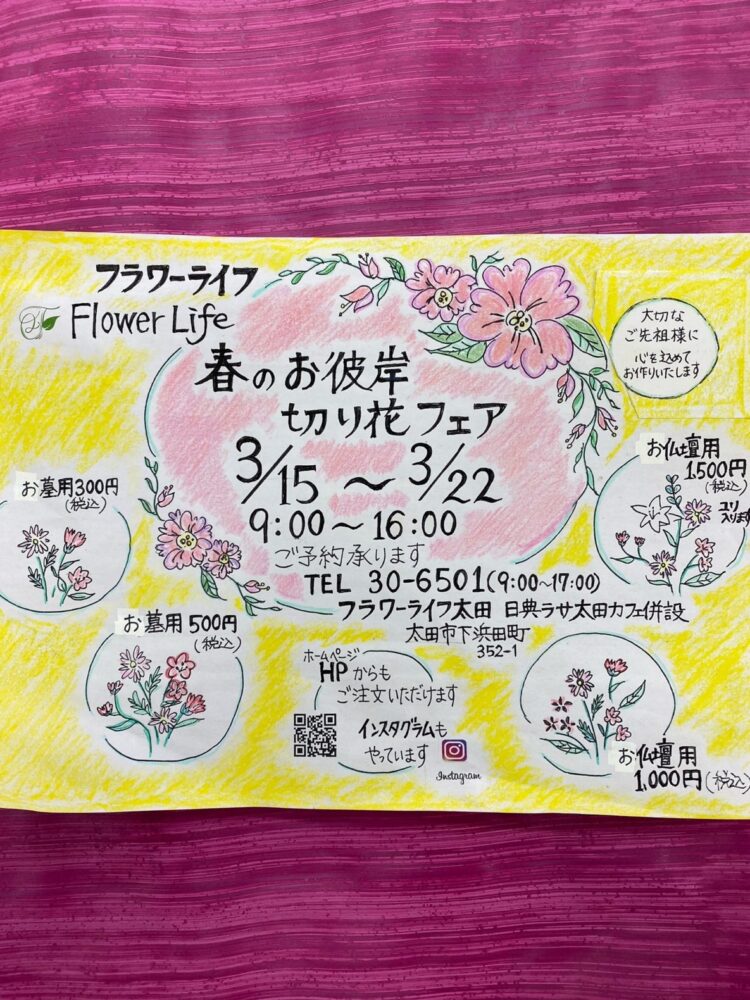 フラワーライフ
Flower Life
春のお彼岸
切り花フェア
3/15～3/22
9:00～16:00
ご予約承ります
TEL 30-6501(9:00～17:00)
フラワーライフ太田 日典ラサ太田カフェ併設
太田市下浜田町
352-1
大切な
ご先祖様に
心を込めて
お作りいたします
お墓用300円
(税込)
お仏壇用
1,500円
(税込)
ユリ
入ります
お墓用500円
(税込)
ホームページ
HPからも
ご注文いただけます
インスタグラムも
やっています
Instagram
お仏壇用
1,000円(税込)